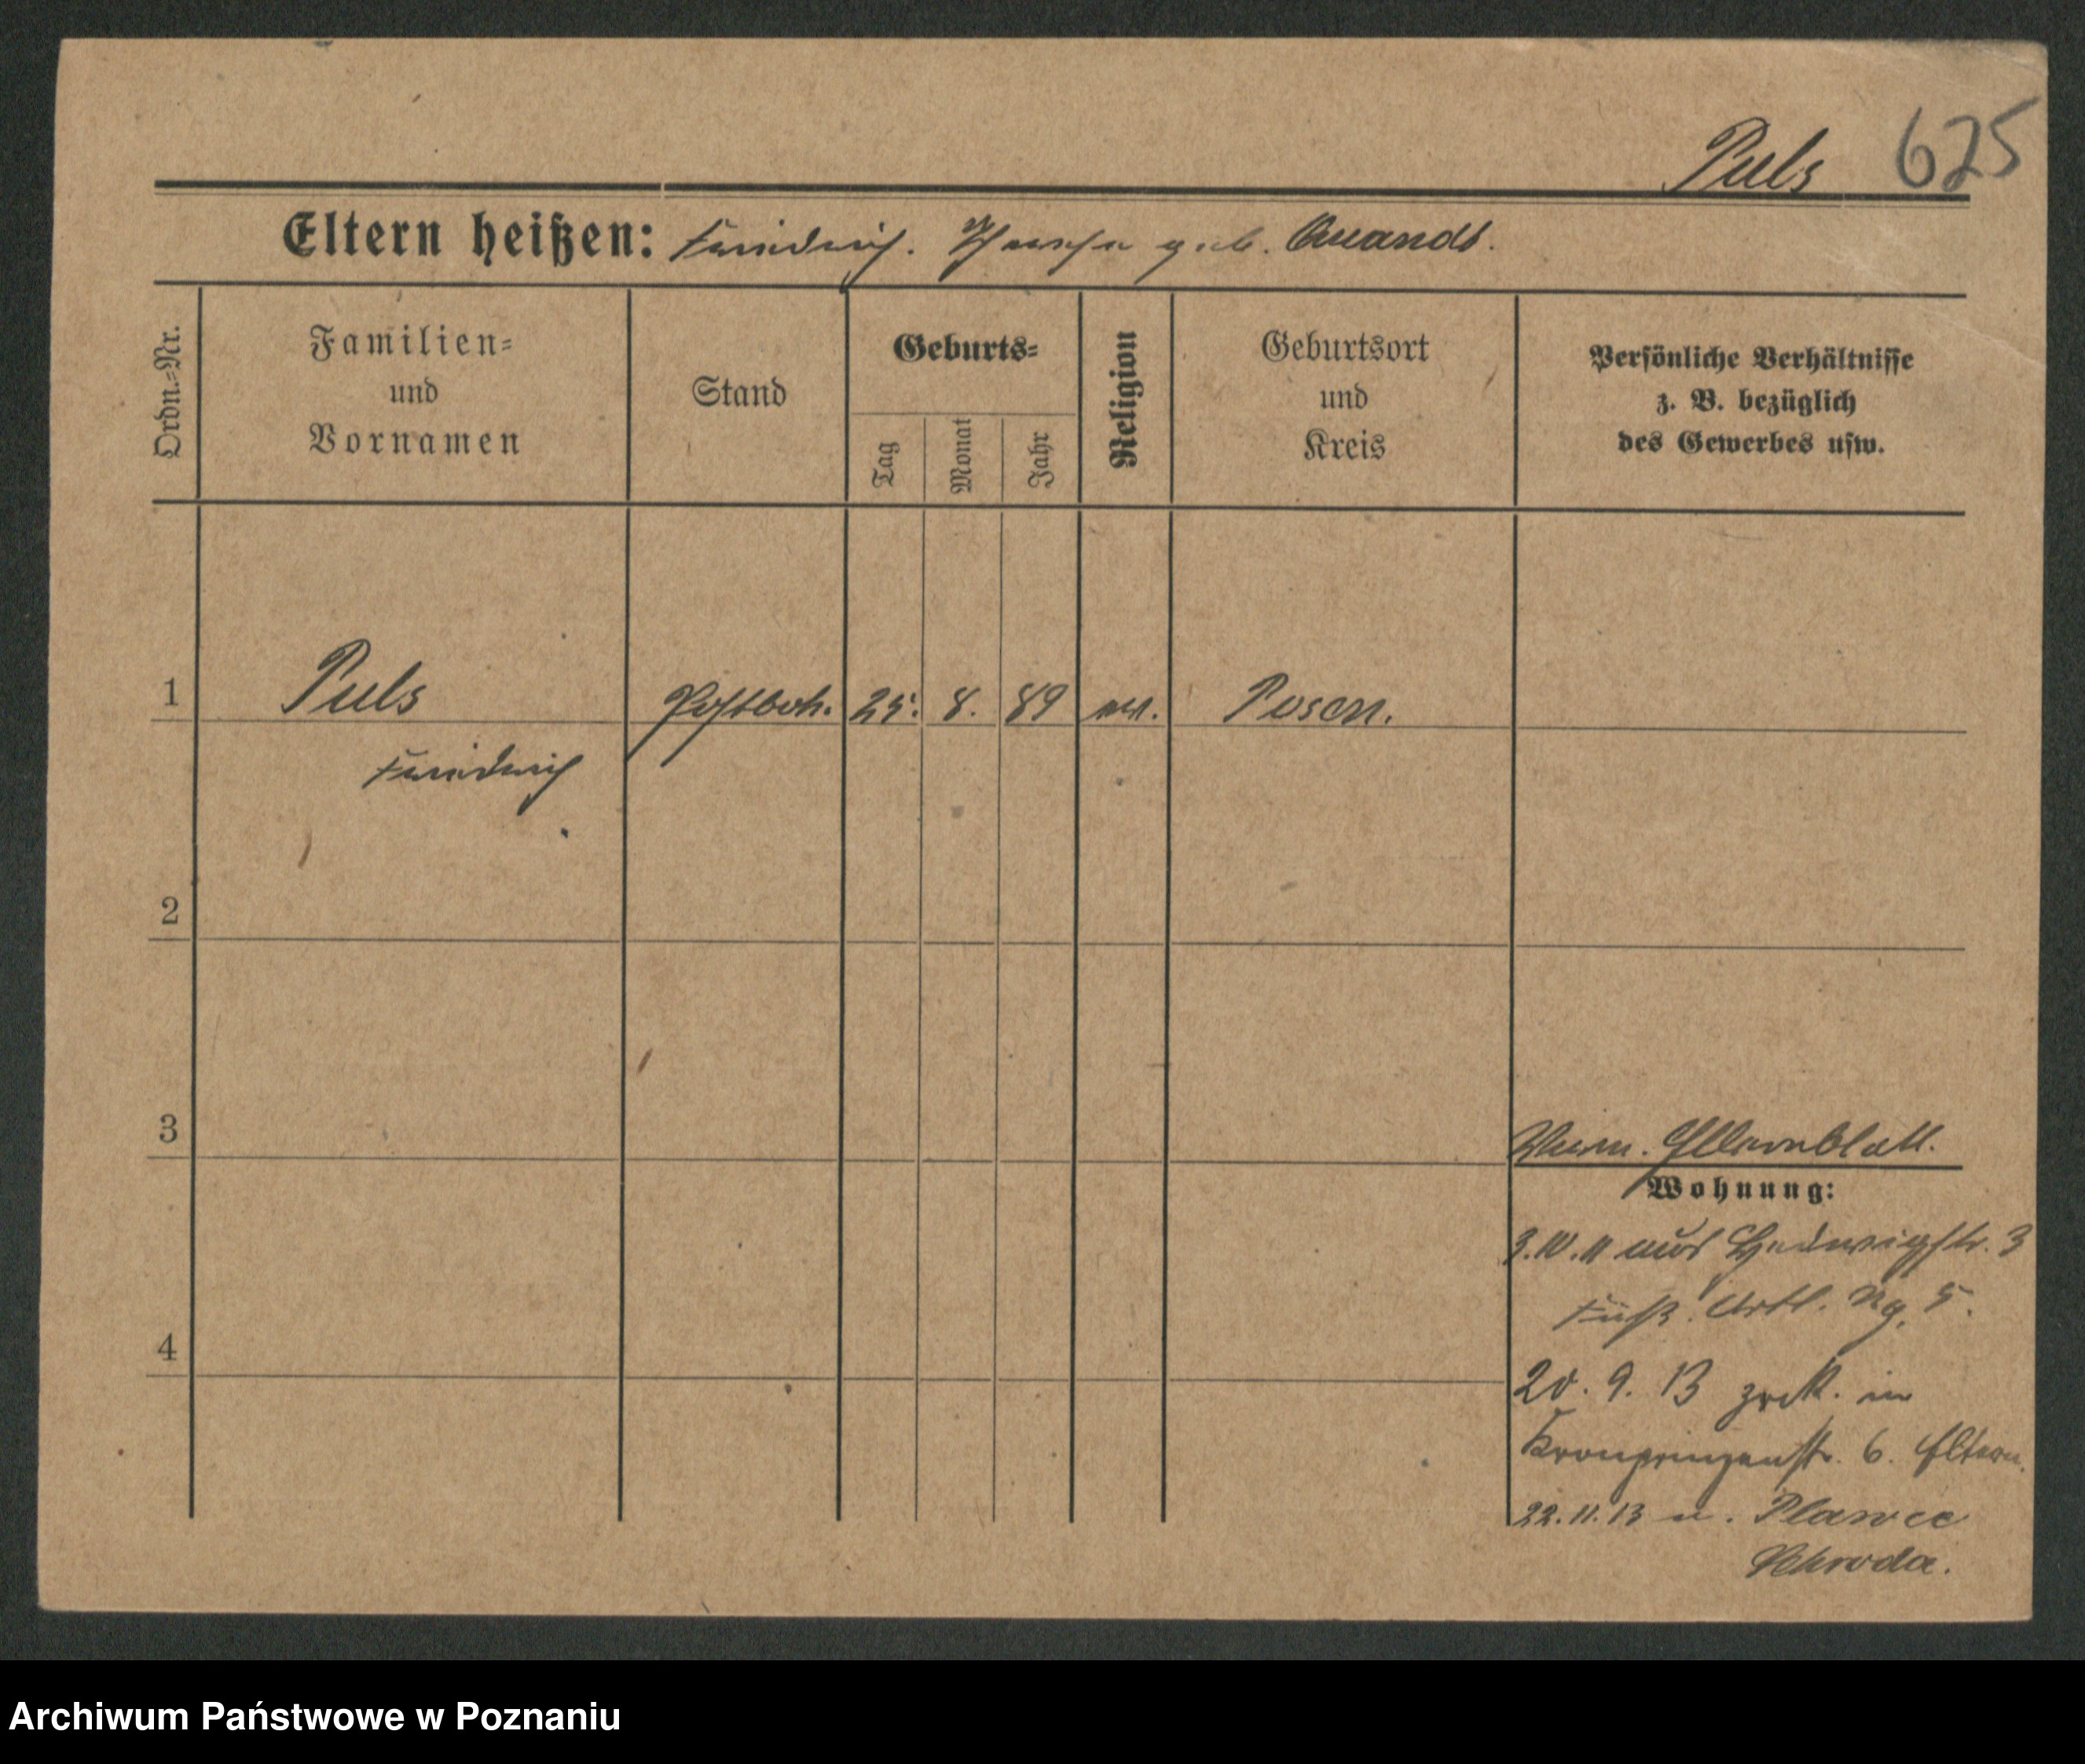 Puls 625
Eltern heißen: Friedrich. geb. Quandt.
Ordn.-Nr.
Familien-
und
Vornamen
Stand
Geburts-
Tag
Monat
Jahr
Religion
Geburtsort
und
Kreis
Persönliche Verhältnisse
z. B. bezüglich
des Gewerbes usw.
1 Puls Postbot. 25. 8. 89 ev. Posen.
Friedrich
2
3
Elternblatt.
Wohnung:
3.10.11 aus Hedwigstr. 3
Fuß. Artl. Rg. 5.
20. 9. 13 zrck. in
Kronprinzenstr. 6. Eltern.
22.11.13 n. Plawce
Schroda.
4
Archiwum Państwowe w Poznaniu